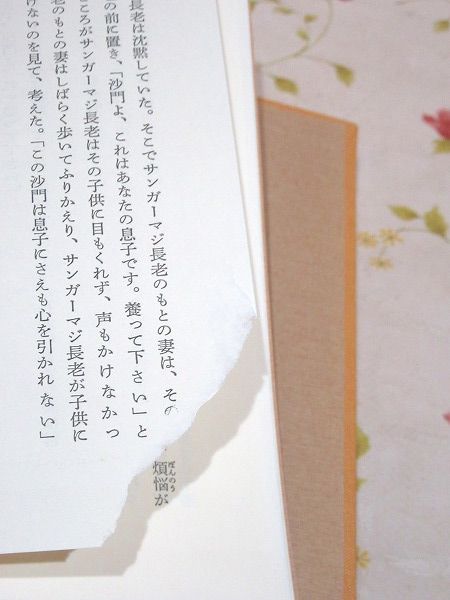 長老は沈黙していた。そこでサンガーマジ長老のもとの妻は、その
の前に置き、「沙門よ、これはあなたの息子です。養って下さい」と
ころがサンガーマジ長老はその子供に目もくれず、声もかけなかっ
老のもとの妻はしばらく歩いてふりかえり、サンガーマジ長老が子供に
けないのを見て、考えた。「この沙門は息子にさえも心を引かれない」
煩悩が
ぼんのう